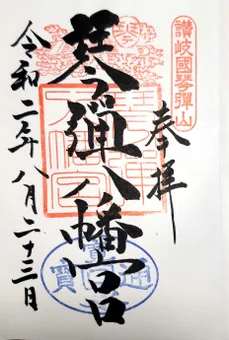 讃岐國琴弾山
奉拝
琴弾八幡宮
令和二年八月二十三日